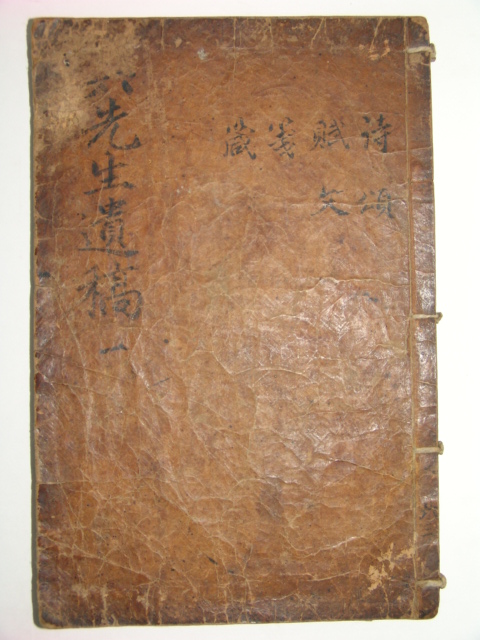 詩頌
賦文
箋
箴
六先生遺稿 一